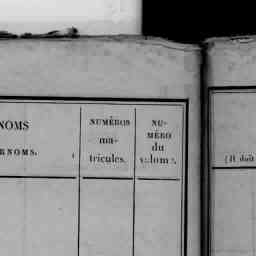 NOMS
RNOMS.
NUMÉROS
ma-
tricules.
NU-
MÉRO
du
(Il doit